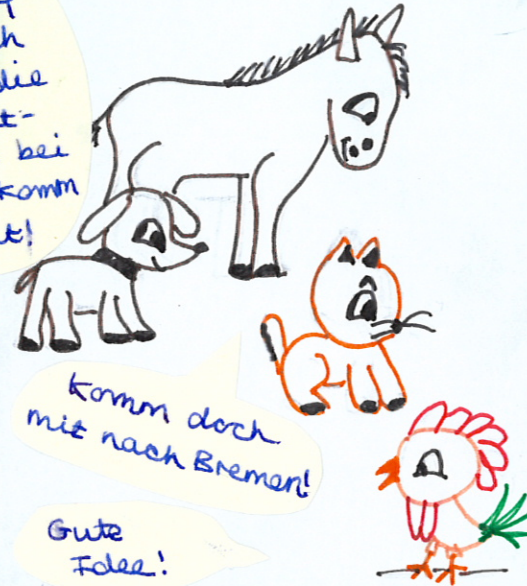 ch
die
t-
bei
komm
t!
Komm doch
mit nach Bremen!
Gute
Idee!